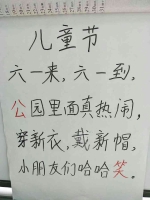 儿童节
六一来，六一到，
公园里面真热闹，
穿新衣，戴新帽，
小朋友们哈哈笑。